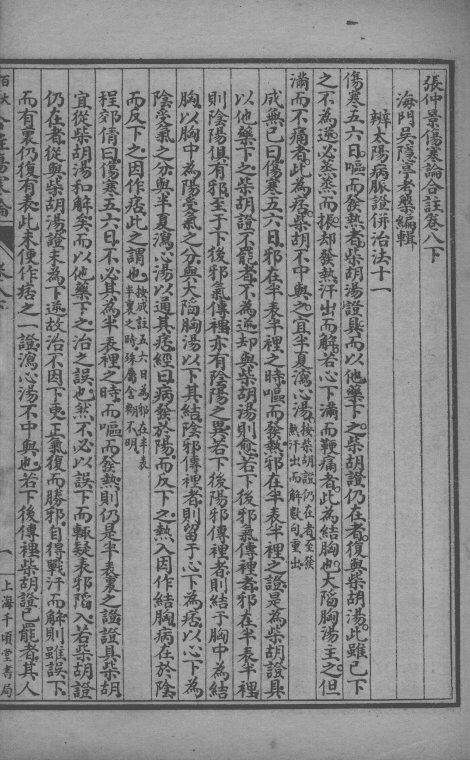 張仲景傷寒論合註卷八下
海門吳隱亭考槃編輯
辨太陽病脈證併治法十一
傷寒五六日。嘔而發熱者。柴胡湯證具。而以他藥下之。柴胡證仍在者。復與柴胡湯。此雖已下
之不為逆。必蒸蒸而振。却發熱汗出而解。若心下滿而鞕痛者。此為結胸也。大陷胸湯主之。但
滿而不痛者。此為痞。柴胡不中與之。宜半夏瀉心湯。按柴胡證仍在者至發熱汗出而解數句重出
成無已曰。傷寒五六日。邪在半表半裡之時。嘔而發熱。邪在半表半裡之證。是為柴胡證具。
以他藥下之。柴胡證不罷者。不為逆。却與柴胡湯則愈。若下後邪氣傳裡者。邪在半表半裡。
則陰陽俱有邪。至于下後邪氣傳裡。亦有陰陽之異。若下後陽邪傳裡者。則結于胸中為結
胸。以胸中為陽受氣之分。與大陷胸湯以下其結。陰邪傳裡者。則留于心下為痞。以心下為
陰受氣之分。與半夏瀉心湯以通其痞。經曰。病發於陽。而反下之。熱入因作結胸。病在於陰。
而反下之。因作痞。此之謂也。按成註五六日為邪在半表半裏之時殊屬含糊不明
程郊倩曰。傷寒五六日。不必其為半表裡之時。而嘔而發熱。則仍是半表裏之證。證具柴胡。
宜從柴胡湯和解矣。而以他藥下之。治之誤也。然不必以誤下而輒疑表邪陷入。若柴胡證
仍在者。從與柴胡湯。證未為下逆。故治不因下更。正氣復而勝邪。自得戰汗而解。則雖誤下。
而有裏仍復有表。此未便作痞之一證。瀉心湯不中與也。若下後傳裡。柴胡證已罷者。其人
卷八下
一
上海千頃堂書局